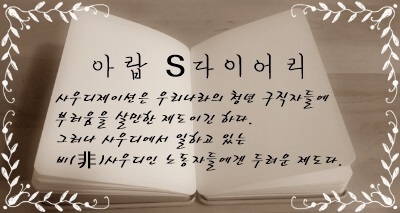 아랍 S다이어리
사우디제이션은 우리나라의 청년 구직자들에
부러움을 살만한 제도이긴 하다.
그러나 사우디에서 일하고 있는
비(非)사우디인 노동자들에겐 두려운 제도다.